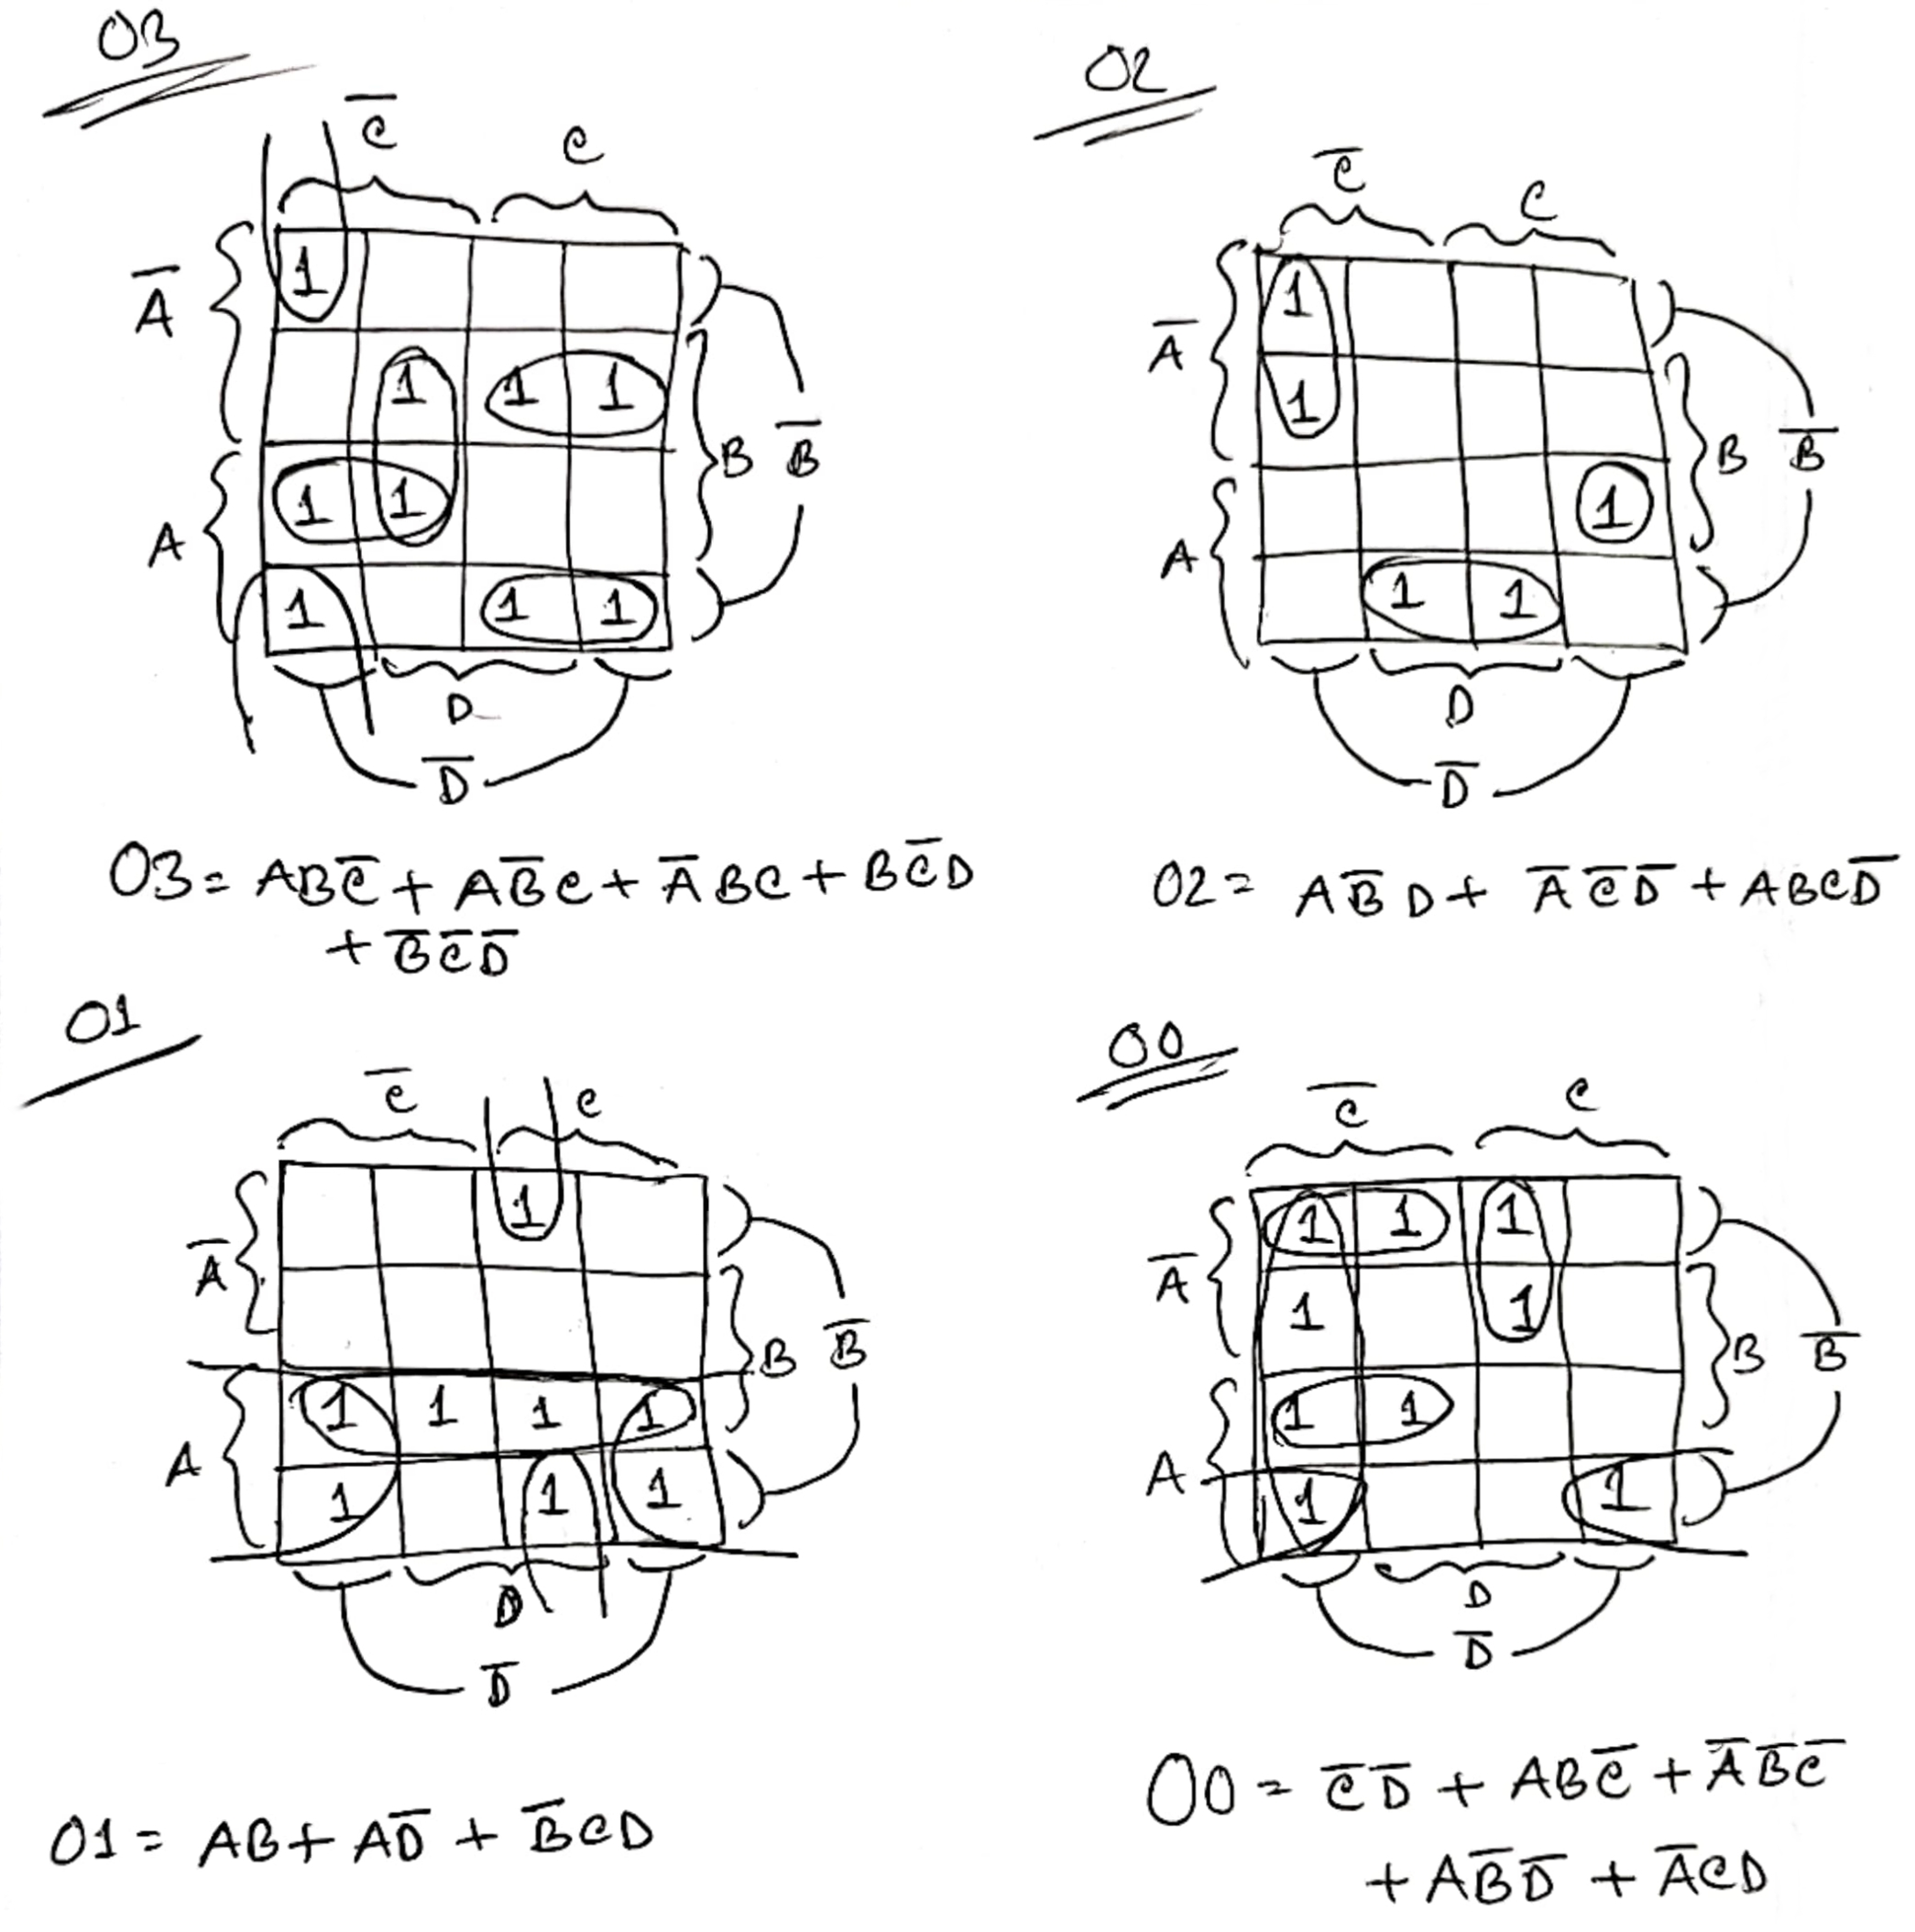 O3
C̅ C
A̅
1
1 1 1
B B̅
A
1 1
1 1 1
D
D̅
O3 = ABC̅ + AB̅C + A̅BC + BC̅D
+ B̅C̅D̅
O2
C̅ C
A̅
1
1
B B̅
A
1
1 1
D
D̅
O2 = AB̅D + A̅C̅D̅ + ABCD̅
O1
C̅ C
A̅
1
B B̅
A
1 1 1 1
1 1 1
D
D̅
O1 = AB + AD̅ + B̅CD
O0
C̅ C
A̅
1 1 1
1 1
B B̅
A
1 1
1 1
D
D̅
O0 = C̅D̅ + ABC̅ + A̅B̅C̅
+ AB̅D̅ + A̅CD